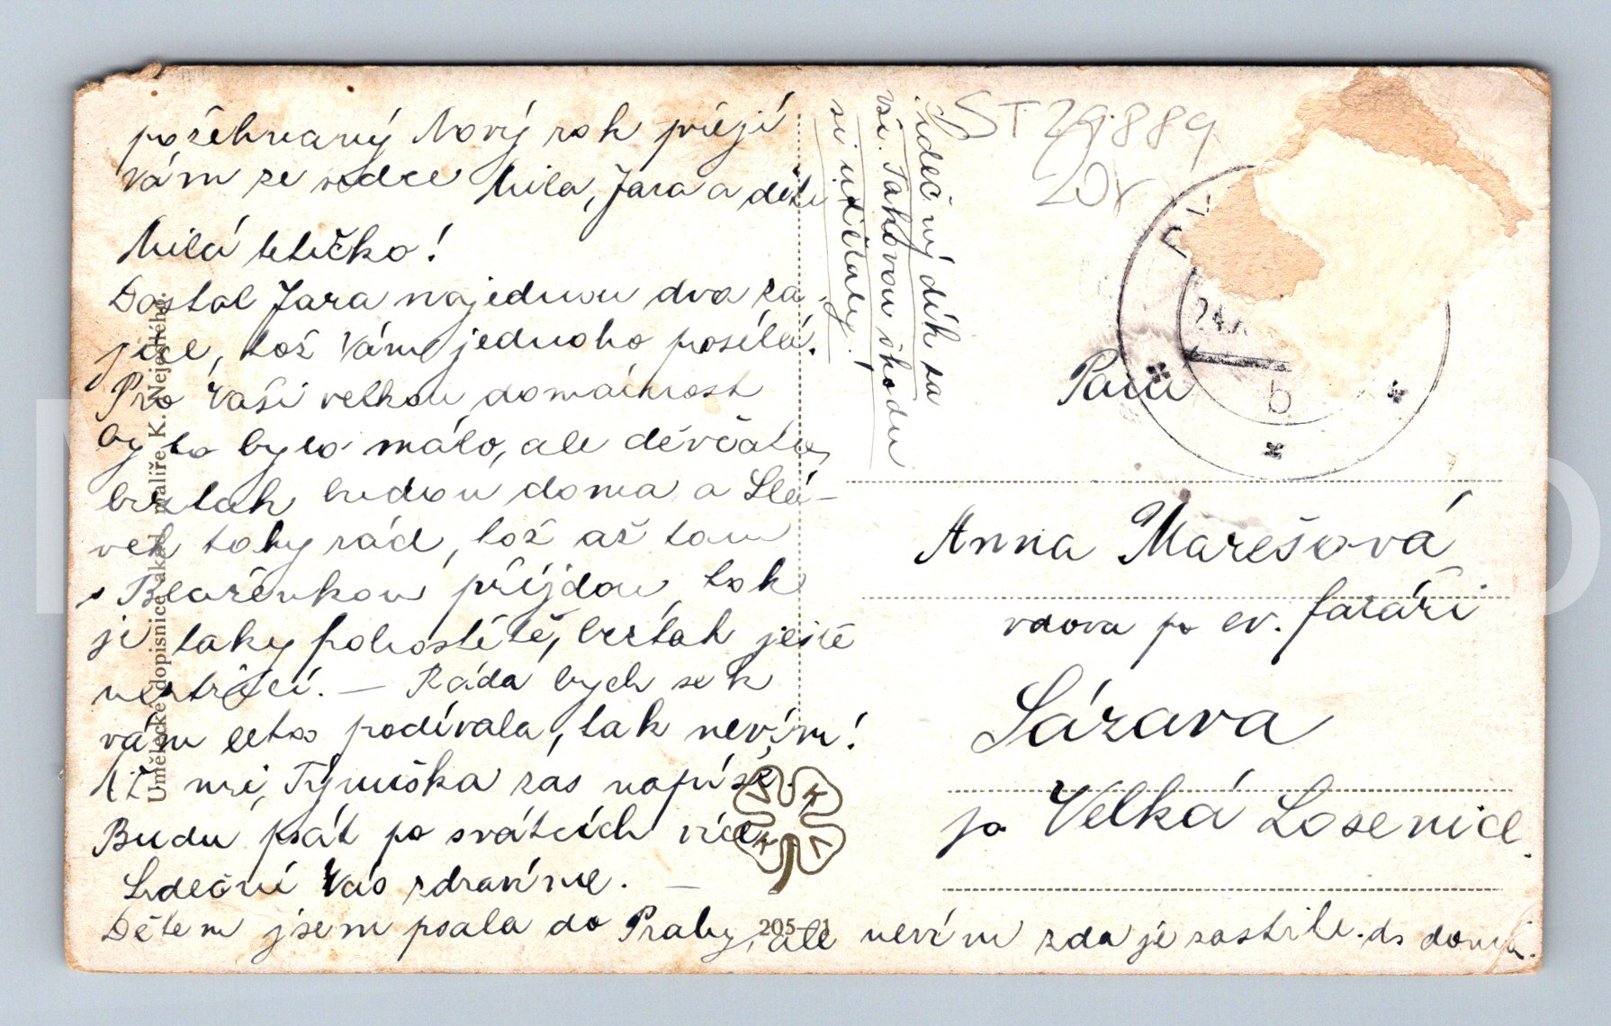 požehnaný Nový rok přejí
Vám ze srdce Míla, Jara a děti
Milá tetičko!
Dostal Jara najednou dva za-
jíce, tož Vám jednoho posílá.
Pro Vaši velkou domácnost
by to bylo málo, ale děvčata
beztak budou doma a Slá-
vek taky rád, tož až tam
s Blaženkou přijdou, tak
je taky pohostíte, beztak ještě
neztrácí. — Ráda bych se k
vám letos podívala, tak nevím!
Ať mi, Týnuška zas napíše.
Budu psát po svátcích více.
Srdečně Vás zdravíme. —
Dětem jsem psala do Prahy, ale nevím zda je zastihle. ds
srdečný dík za
vši. Takovou škodu
si udělaly!
ST 29.889
20,-
24.
b
Paní
Anna Marešová
vdova po ev. faráři
Sázava
p. Velká Losenice.
Umělecké dopisnice akad. malíře K. Nejedlého.
205